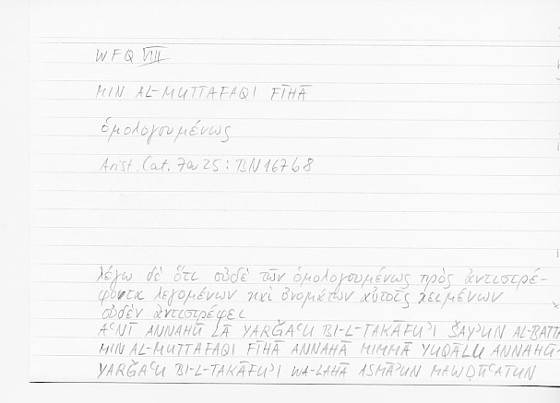 WFQ VIII
MIN AL-MUTTAFAQI FĪHĀ
ὁμολογουμένως
Arist. Cat. 7a25: BN 167 68
λέγω δὲ ὅτι οὐδὲ τῶν ὁμολογουμένως πρὸς ἀντιστρέ-
φοντα λεγομένων καὶ ὀνομάτων αὐτοῖς κειμένων
οὐδὲν ἀντιστρέφει
AʿNĪ ANNAHŪ LĀ YARǦAʿU BI-L-TAKĀFUʾI ŠAYʾUN AL-BATTA
MIN AL-MUTTAFAQI FĪHĀ ANNAHĀ MIMMĀ YUQĀLU ANNAHŪ
YARǦAʿU BI-L-TAKĀFUʾI WA-LAHĀ ASMĀʾUN MAWḌŪʿATUN